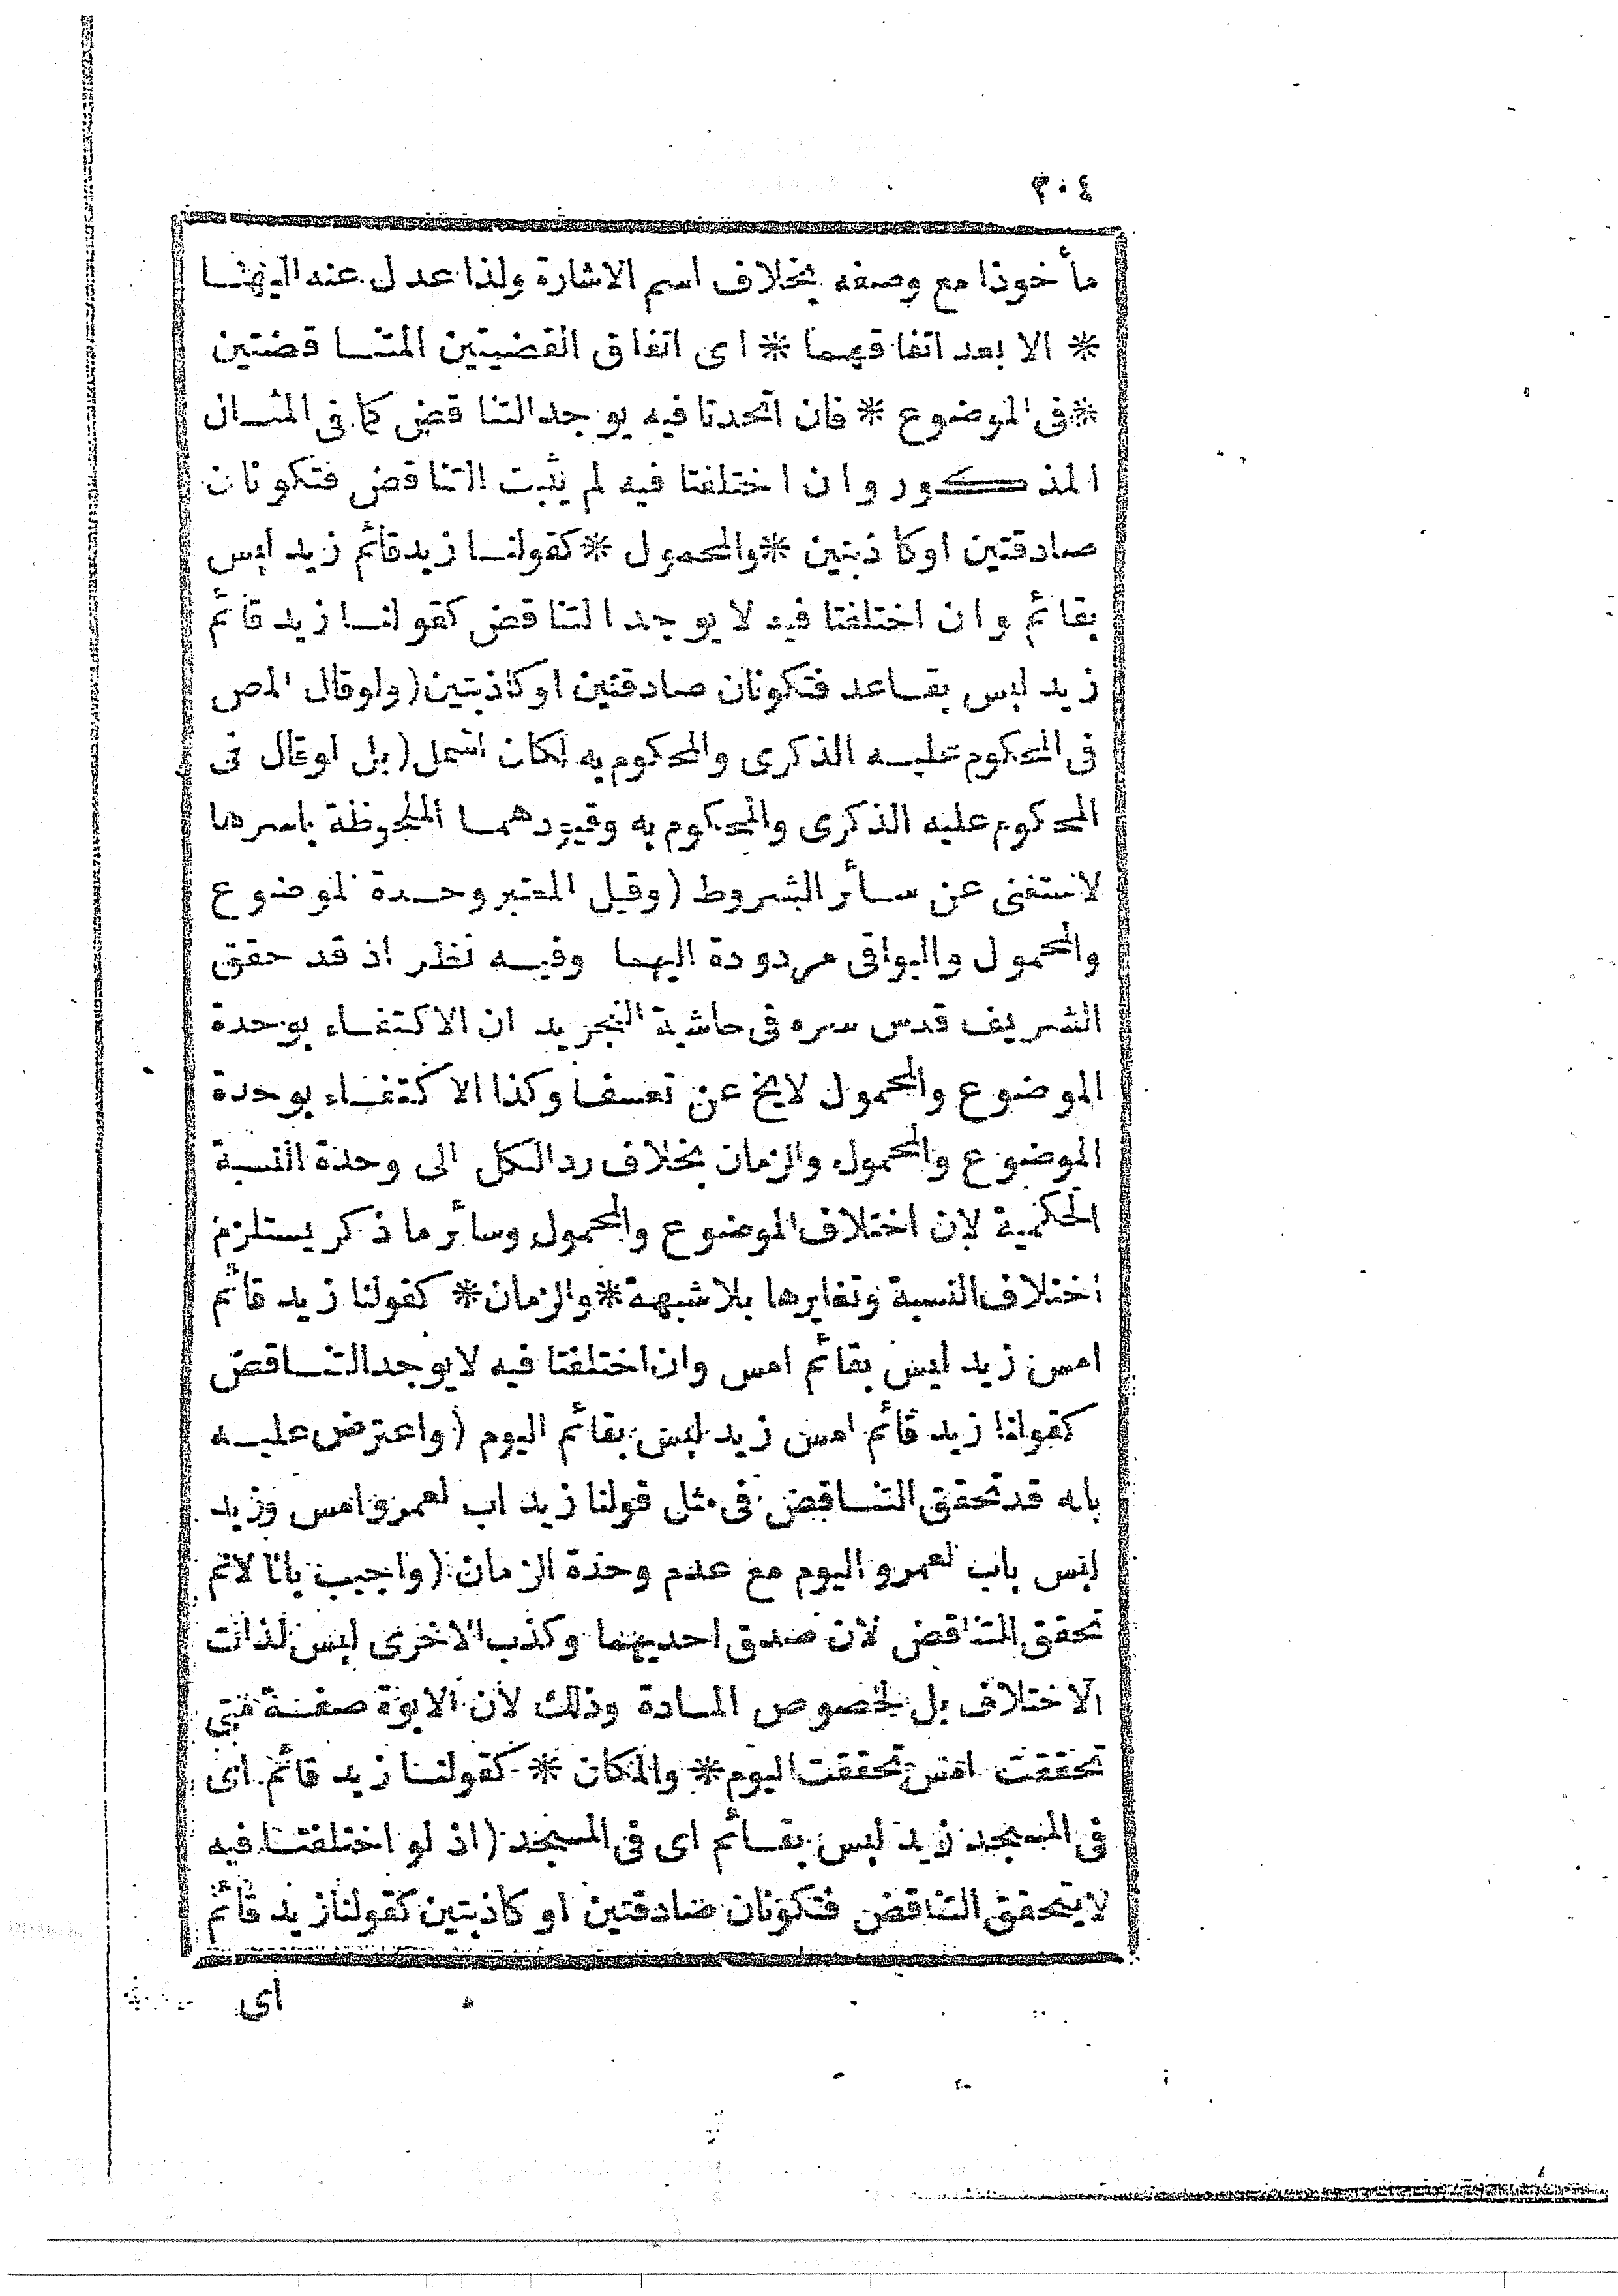 ٣٠٤
مأخوذا مع وصفه بخلاف اسم الاشارة ولذا عدل عنه اليهنا
* الا بعد اتفاقهما * اى اتفاق القضيتين المتناقضتين
* فى الموضوع * فان اتحدتا فيه يوجد التناقض كما فى المثال
المذكور وان اختلفتا فيه لم يثبت التناقض فتكونان
صادقتين اوكاذبتين * والمحمول * كقولنا زيد قائم زيد ليس
بقائم وان اختلفتا فيه لا يوجد التناقض كقولنا زيد قائم
زيد ليس بقاعد فتكونان صادقتين اوكاذبتين (ولوقال المص
فى المحكوم عليه الذكرى والمحكوم به لكان اشمل (بل لوقال فى
المحكوم عليه الذكرى والمحكوم به وقيودهما الملحوظة باسرها
لاستغنى عن سائر الشروط (وقيل المعتبر وحدة الموضوع
والمحمول والبواقى مردودة اليهما وفيه نظر اذ قد حقق
الشريف قدس سره فى حاشية التجريد ان الاكتفاء بوحدة
الموضوع والمحمول لايخ عن تعسف وكذا الاكتفاء بوحدة
الموضوع والمحمول والزمان بخلاف رد الكل الى وحدة النسبة
الحكمية لان اختلاف الموضوع والمحمول وسائر ما ذكر يستلزم
اختلاف النسبة وتغايرها بلا شبهة * والزمان * كقولنا زيد قائم
امس زيد ليس بقائم امس وان اختلفتا فيه لا يوجد التناقض
كقولنا زيد قائم امس زيد ليس بقائم اليوم (واعترض عليه
بانه قد تحقق التناقض فى مثل قولنا زيد اب لعمرو امس وزيد
ليس باب لعمرو اليوم مع عدم وحدة الزمان (واجيب بانا لانم
تحقق التناقض لان صدق احديهما وكذب الاخرى ليس لذات
الاختلاف بل لخصوص المادة وذلك لان الابوة صفة متى
تحققت امس تحققت اليوم * والمكان * كقولنا زيد قائم اى
فى المسجد زيد ليس بقائم اى فى المسجد (اذ لو اختلفتا فيه
لا يتحقق التناقض فتكونان صادقتين او كاذبتين كقولنا زيد قائم
اى